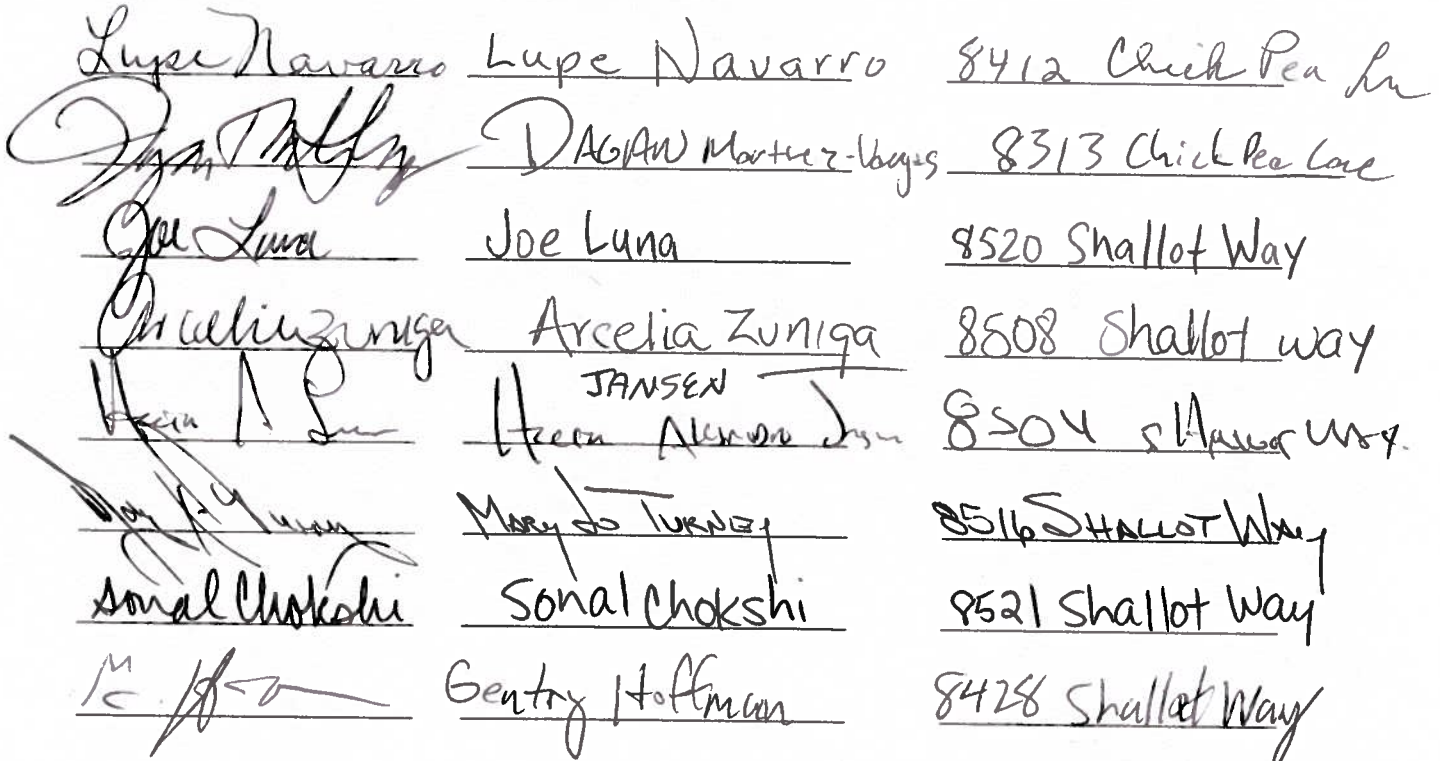 Lupe Navarro Lupe Navarro 8412 Chick Pea Ln
DAGAN Martinez-Vargas 8313 Chick Pea Lane
Joe Luna Joe Luna 8520 Shallot Way
Arcelia Zuniga Arcelia Zuniga 8508 Shallot way
JANSEN
8504 sHallot WAY.
MARY Jo TURNEY 8516 SHALLOT WAy
Sonal Chokshi Sonal Chokshi 8521 Shallot Way
Gentry Hoffman 8428 Shallot Way